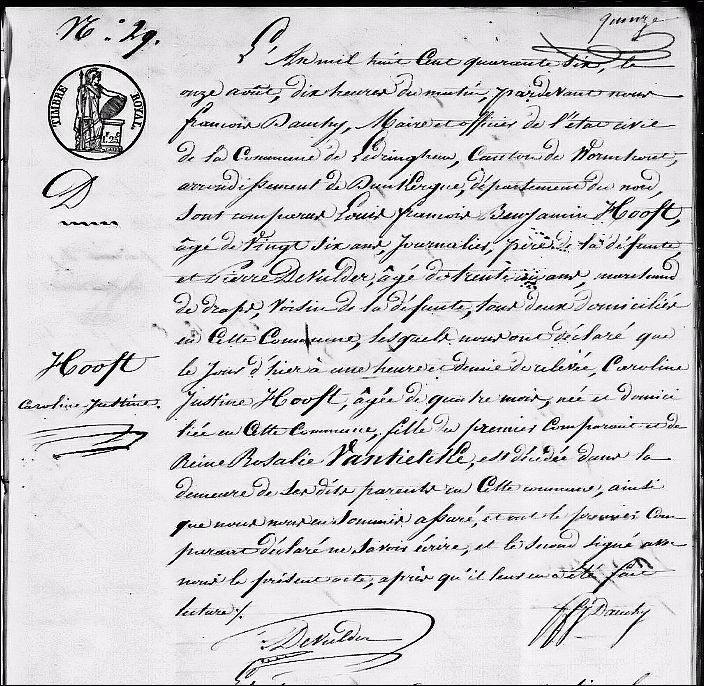 quinze
N.º 29.
TIMBRE ROYAL
D
Hooft
Caroline Justine.
L'An mil huit Cent quarante Six, le
onze août, dix heures du matin, pardevant nous
françois Dauchy, Maire et officier de l'état civil
de la Commune de Ledringhem, Canton de Wormhout,
arrondissement de Dunkerque, département du nord,
sont comparus Louis françois Benjamin Hooft,
âgé de Vingt Six ans, Journalier, père de la défunte,
et Pierre DeVulder, âgé de trente ans, marchand
de draps, Voisin de la défunte, tous deux domiciliés
en Cette Commune, lesquels nous ont déclaré que
le Jour d'hier à une heure et demie de relevée, Caroline
Justine Hooft, âgée de quatre mois, née et domici
liée en Cette Commune, fille du premier Comparant et de
Reine Rosalie, est décédée dans la
demeure de Ses dits parents en Cette commune, ainsi
que nous nous en Sommes assuré, et ont le premier Com-
parant déclaré ne Savoir écrire, et le second signé avec
nous le présent acte, après qu'il leur en a été fait
lecture.
DeVulder
Dauchy